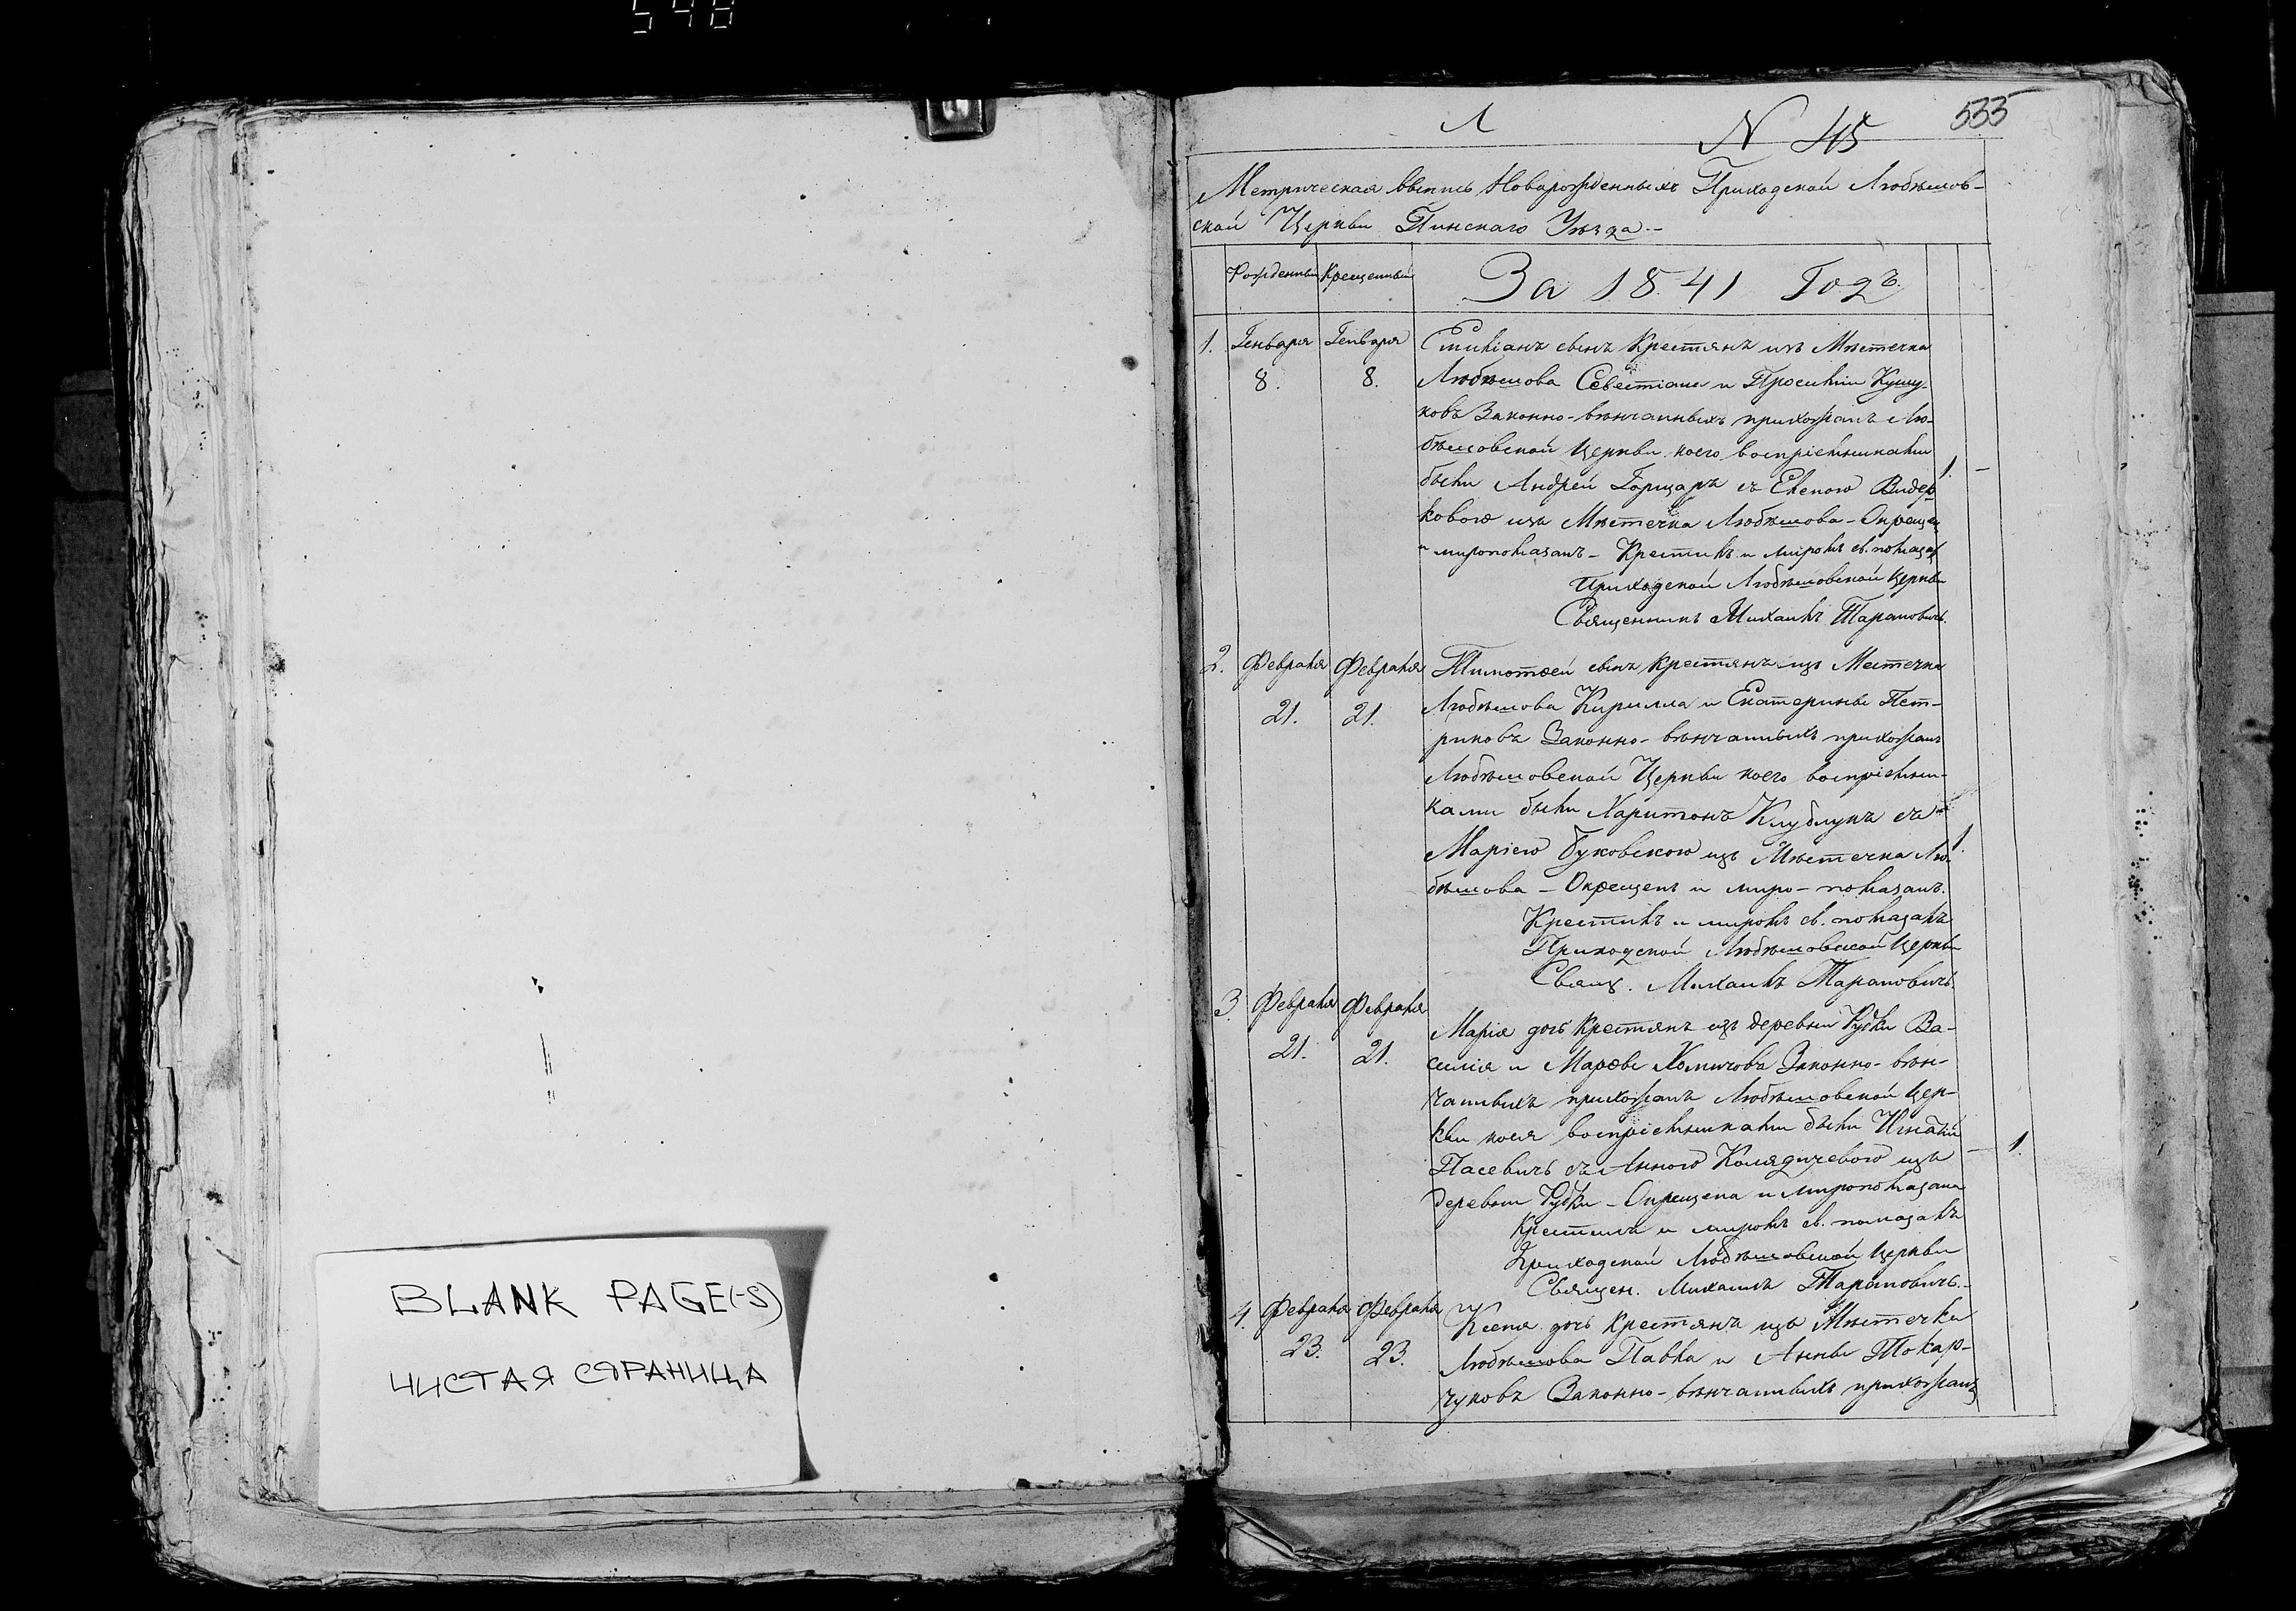 548
1
N 45
535
Метрическая выпись Новарожденныхъ Приходской Любѣшов-
ской Церкви Пинскаго Уѣзда.-
Рожденный Крещенный За 1841 Годъ.
1. Генваря Генваря Емиліанъ сынъ Крестянъ изъ Мѣстечка
8. 8. Любѣшова Севестіана и Просимиіи
ковъ Законно-вѣнчанныхъ прихожанъ Лю-
бѣшовской Церкви коего воспріемниками
были Андрей Горщаръ съ Еленою Видер
ковою изъ Мѣстечка Любѣшова - Окрещен
и миропомазанъ - Крестилъ и миромъ св. помазал
Приходской Любѣшовской Церкви
Священникъ Михаилъ Тарановичъ.
1. -
2. Февраля Февраля Тимотѳей сынъ крестянъ изъ Местечка
21. 21. Любѣшова Кирилла и Екатерины Пет-
риковъ Законно-вѣнчанныхъ прихожанъ
Любѣшовской Церкви коего воспріемни-
ками были Харитонъ Клублукъ съ
Маріею Буковскою изъ Мѣстечка Лю-
бѣшова - Окрещенъ и миро-помазанъ.
Крестилъ и миромъ св. помазалъ
Приходской Любѣшовской Церкви
Свящ. Михаилъ Тарановичъ.
1.
3. Февраля Февраля
21. 21. Марія дочь Крестянъ изъ деревни Рудки Ва-
силія и Марѳы Хомичовъ Законно-вѣн-
чанныхъ прихожанъ Любѣшовской Цер-
кви коея воспріемниками были Игнатій
Пасевичъ съ Анною Колядичевою изъ
деревни Рудки - Окрещена и миропомазана
Крестилъ и миромъ св. помазалъ
Приходской Любѣшовской Церкви
Священ. Михаилъ Тарановичъ.-
- 1.
4. Февраля Февраля Ксенія дочь Крестянъ изъ Мѣстечка
23. 23. Любѣшова Павла и Анны Токар-
чуковъ Законно-вѣнчанныхъ прихожанъ
BLANK PAGE(-S)
ЧИСТАЯ СТРАНИЦА